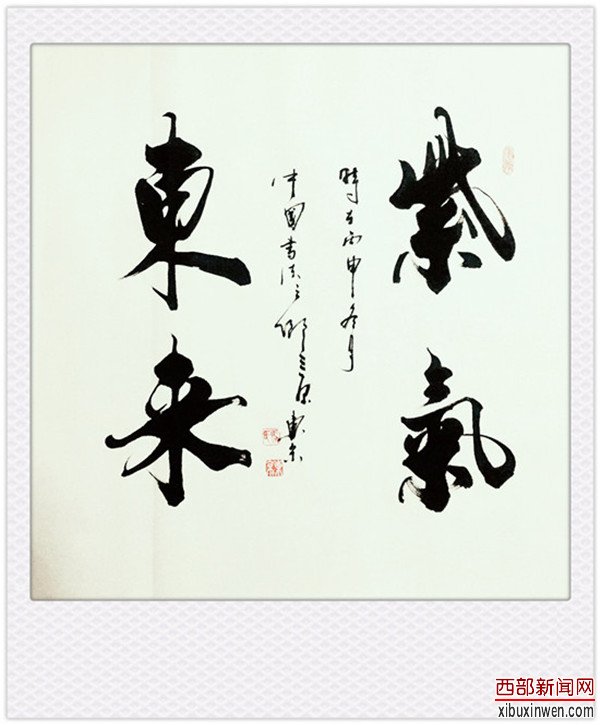 紫氣
時在丙申冬月
中國書法之鄉三原
東来
西部新闻网
xibuxinwen.com